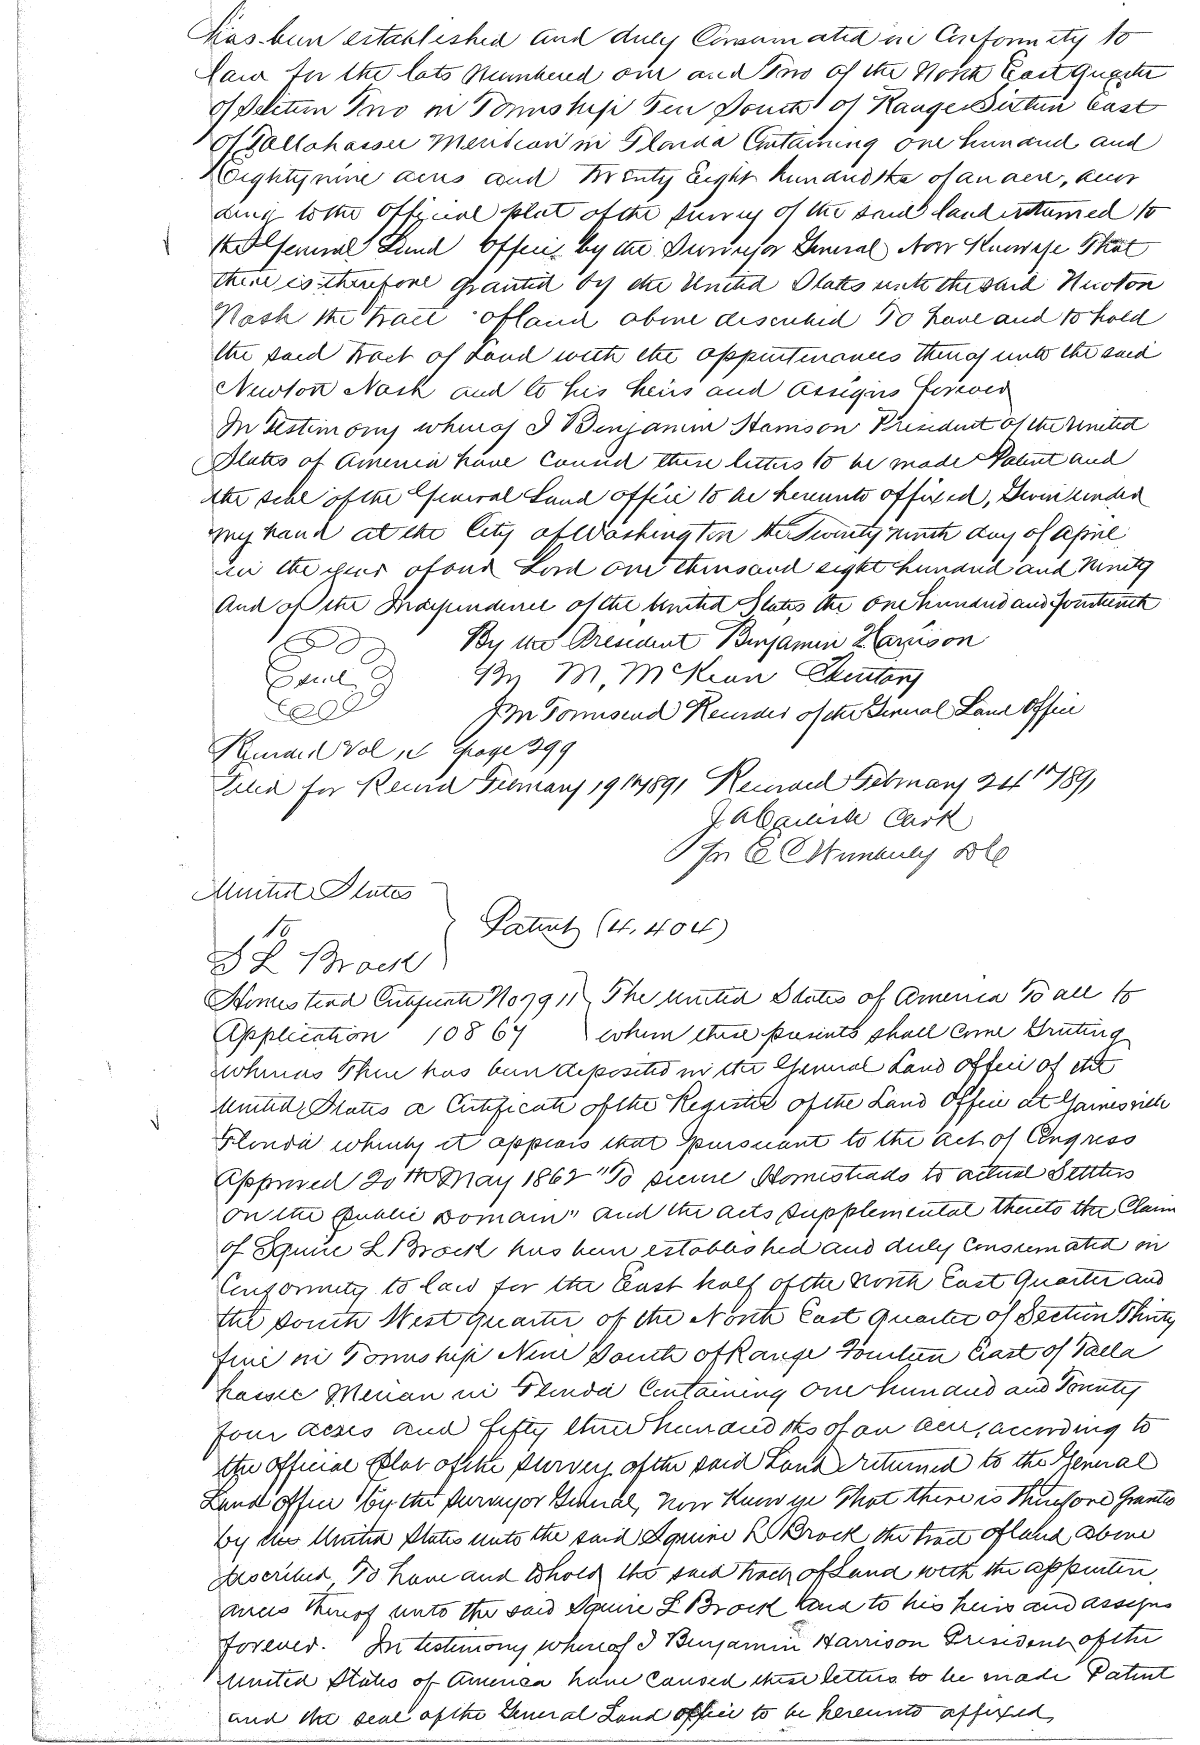 has been established and duly Consumated in Conformity to
law for the lots Numbered one and Two of the North East quarter
of Section Two in Township Ten South of Range Sixteen East
of Tallahassee Meridian in Florida Containing one hundred and
Eighty nine acres and Twenty Eight hundredths of an acre, accor
ding to the Official plat of the survey of the said land returned to
the General Land Office by the Surveyor General Now Know ye That
there is therefore granted by the United States unto the said Newton
Nash the tract of land above described To have and to hold
the said tract of Land with the appurtenances thereof unto the said
Newton Nash and to his heirs and assigns forever
In Testimony whereof I Benjamin Harrison President of the United
States of America have caused these letters to be made Patent and
the seal of the General Land office to be hereunto affixed, Given under
my hand at the City of Washington the Twenty ninth day of April
in the year of our Lord one thousand eight hundred and Ninety
And of the Independence of the United States the one hundred and fourteenth
By the President Benjamin Harrison
Seal By M, McKean Secretary
J M Townsend Recorder of the General Land Office
Recorded Vol page 299
Filed for Record February 19th 1891 Recorded February 24th 1891
J A Carlisle Clerk
Pr E C DC
United States
to
Patent (4,404)
S L Brock
Homestead Certificate No 7911 The United States of America To all to
Application 10867 whom these presents shall come Greeting
whereas There has been deposited in the General Land Office of the
United States a Certificate of the Register of the Land Office at Gainesville
Florida whereby it appears that pursuant to the act of Congress
Approved 20th May 1862 "To secure Homesteads to actual Settlers
on the public Domain" and the acts supplemental thereto the Claim
of Squire L Brock has been established and duly Consumated in
Conformity to law for the East half of the North East Quarter and
the South West quarter of the North East quarter of Section Thirty
five in Township Nine South of Range Fourteen East of Talla
hassee Merian in Florida Containing one hundred and Twenty
four acres and fifty three hundredths of an acre, according to
the Official Plat of the survey of the said Land returned to the General
Land office by the surveyor General, now Know ye That there is therefore Granted
by the United States unto the said Squire L Brock the tract of land above
described, To have and to hold the said track of Land with the appurten
ances thereof unto the said Squire L Brock and to his heirs and assigns
forever. In testimony whereof I Benjamin Harrison President of the
United States of America have caused these letters to be made Patent
and the seal of the General Land office to be hereunto affixed,